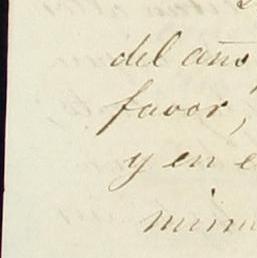 del año
favor,
y en